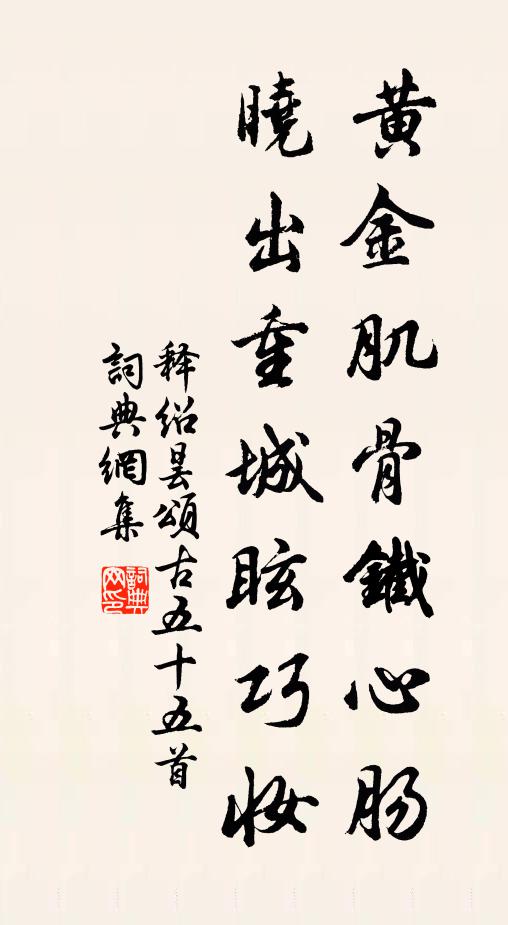 黄金肌骨鐵心肠
曉出重城眩巧妝
释绍昙頌古五十五首
詞典網集
詞典網印